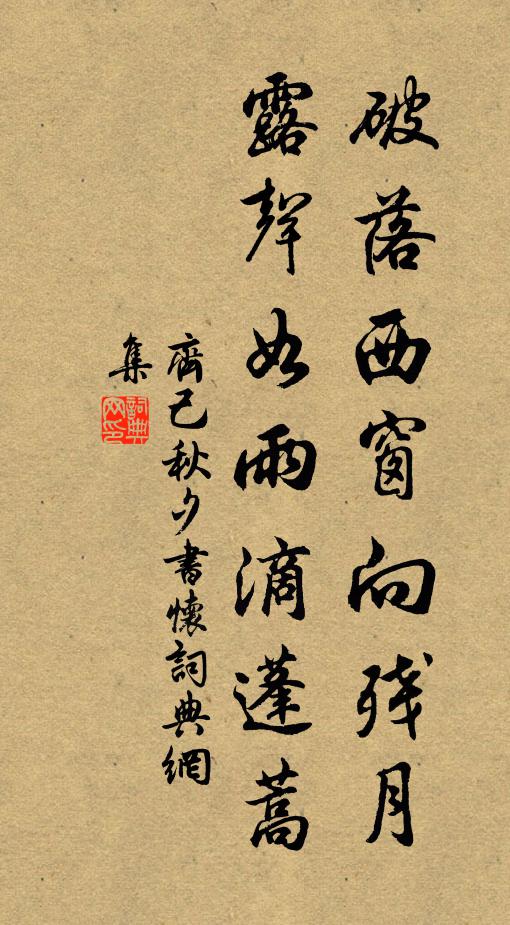 破落西窗向残月
露聲如雨滴蓬蒿
齊己秋夕書懷詞典網
集
詞典
网印